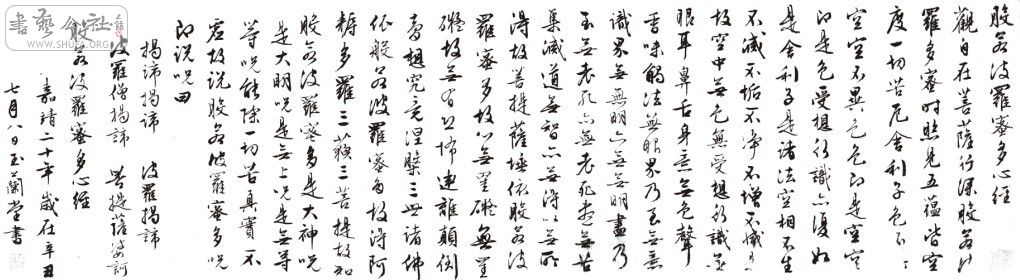 般若波羅蜜多心經
觀自在菩薩行深般若波
羅多蜜時照見五蘊皆空
度一切苦厄舍利子色不
空空不異色色即是空空
即是色受想行識亦復如
是舍利子是諸法空相不生
不滅不垢不淨不增不減是
故空中無色無受想行識無
眼耳鼻舌身意無色聲
香味觸法無眼界乃至無意
識界無無明亦無無明盡乃
至無老死亦無老死盡無苦
集滅道無智亦無得以無所
得故菩提薩埵依般若波
羅蜜多故心無罣礙無罣
礙故無有恐怖遠離顛倒
夢想究竟涅槃三世諸佛
依般若波羅蜜多故得阿
耨多羅三藐三菩提故知
般若波羅蜜多是大神咒
是大明咒是無上咒是無等
等咒能除一切苦真實不
虛故說般若波羅蜜多咒
即說咒曰
揭諦揭諦 波羅揭諦
波羅僧揭諦 菩提薩婆訶
般若波羅蜜多心經
嘉靖二十年歲在辛丑
七月八日玉蘭堂書